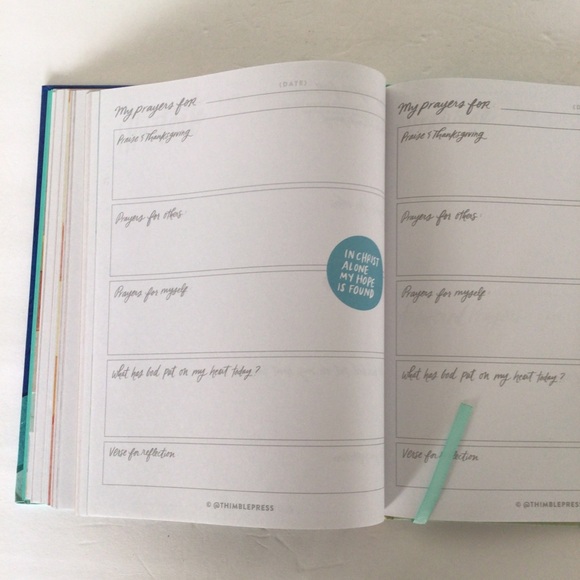 (DATE)
My prayers for
Praise & Thanksgiving
Prayers for others:
IN CHRIST
ALONE
MY HOPE
IS FOUND
Prayers for myself
What has God put on my heart today?
Verse for reflection
© @THIMBLEPRESS
My prayers for
Praise & Thanksgiving
Prayers for others:
Prayers for myself
What has God put on my heart today?
Verse for reflection
© @THIMBLEPRESS